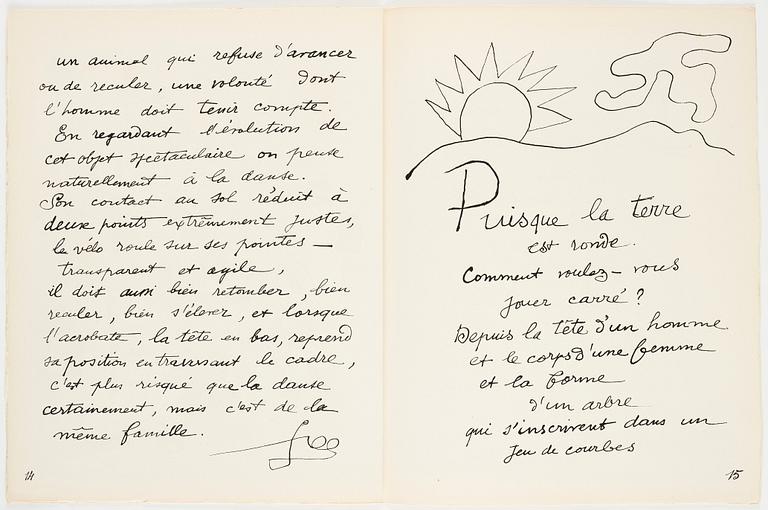 un animal qui refuse d'avancer
ou de reculer, une volonté dont
l'homme doit tenir compte.
En regardant l'évolution de
cet objet spectaculaire on pense
naturellement à la danse.
Son contact au sol réduit à
deux points extrêmement justes,
le vélo roule sur ses pointes –
transparent et agile,
il doit aussi bien retomber, bien
reculer, bien s'élever, et lorsque
l'acrobate, la tête en bas, reprend
sa position en traversant le cadre,
c'est plus risqué que la danse
certainement, mais c'est de la
même famille.
14
Puisque la terre
est ronde.
Comment voulez-vous
jouer carré ?
Depuis la tête d'un homme
et le corps d'une femme
et la forme
d'un arbre
qui s'inscrivent dans un
jeu de courbes
15